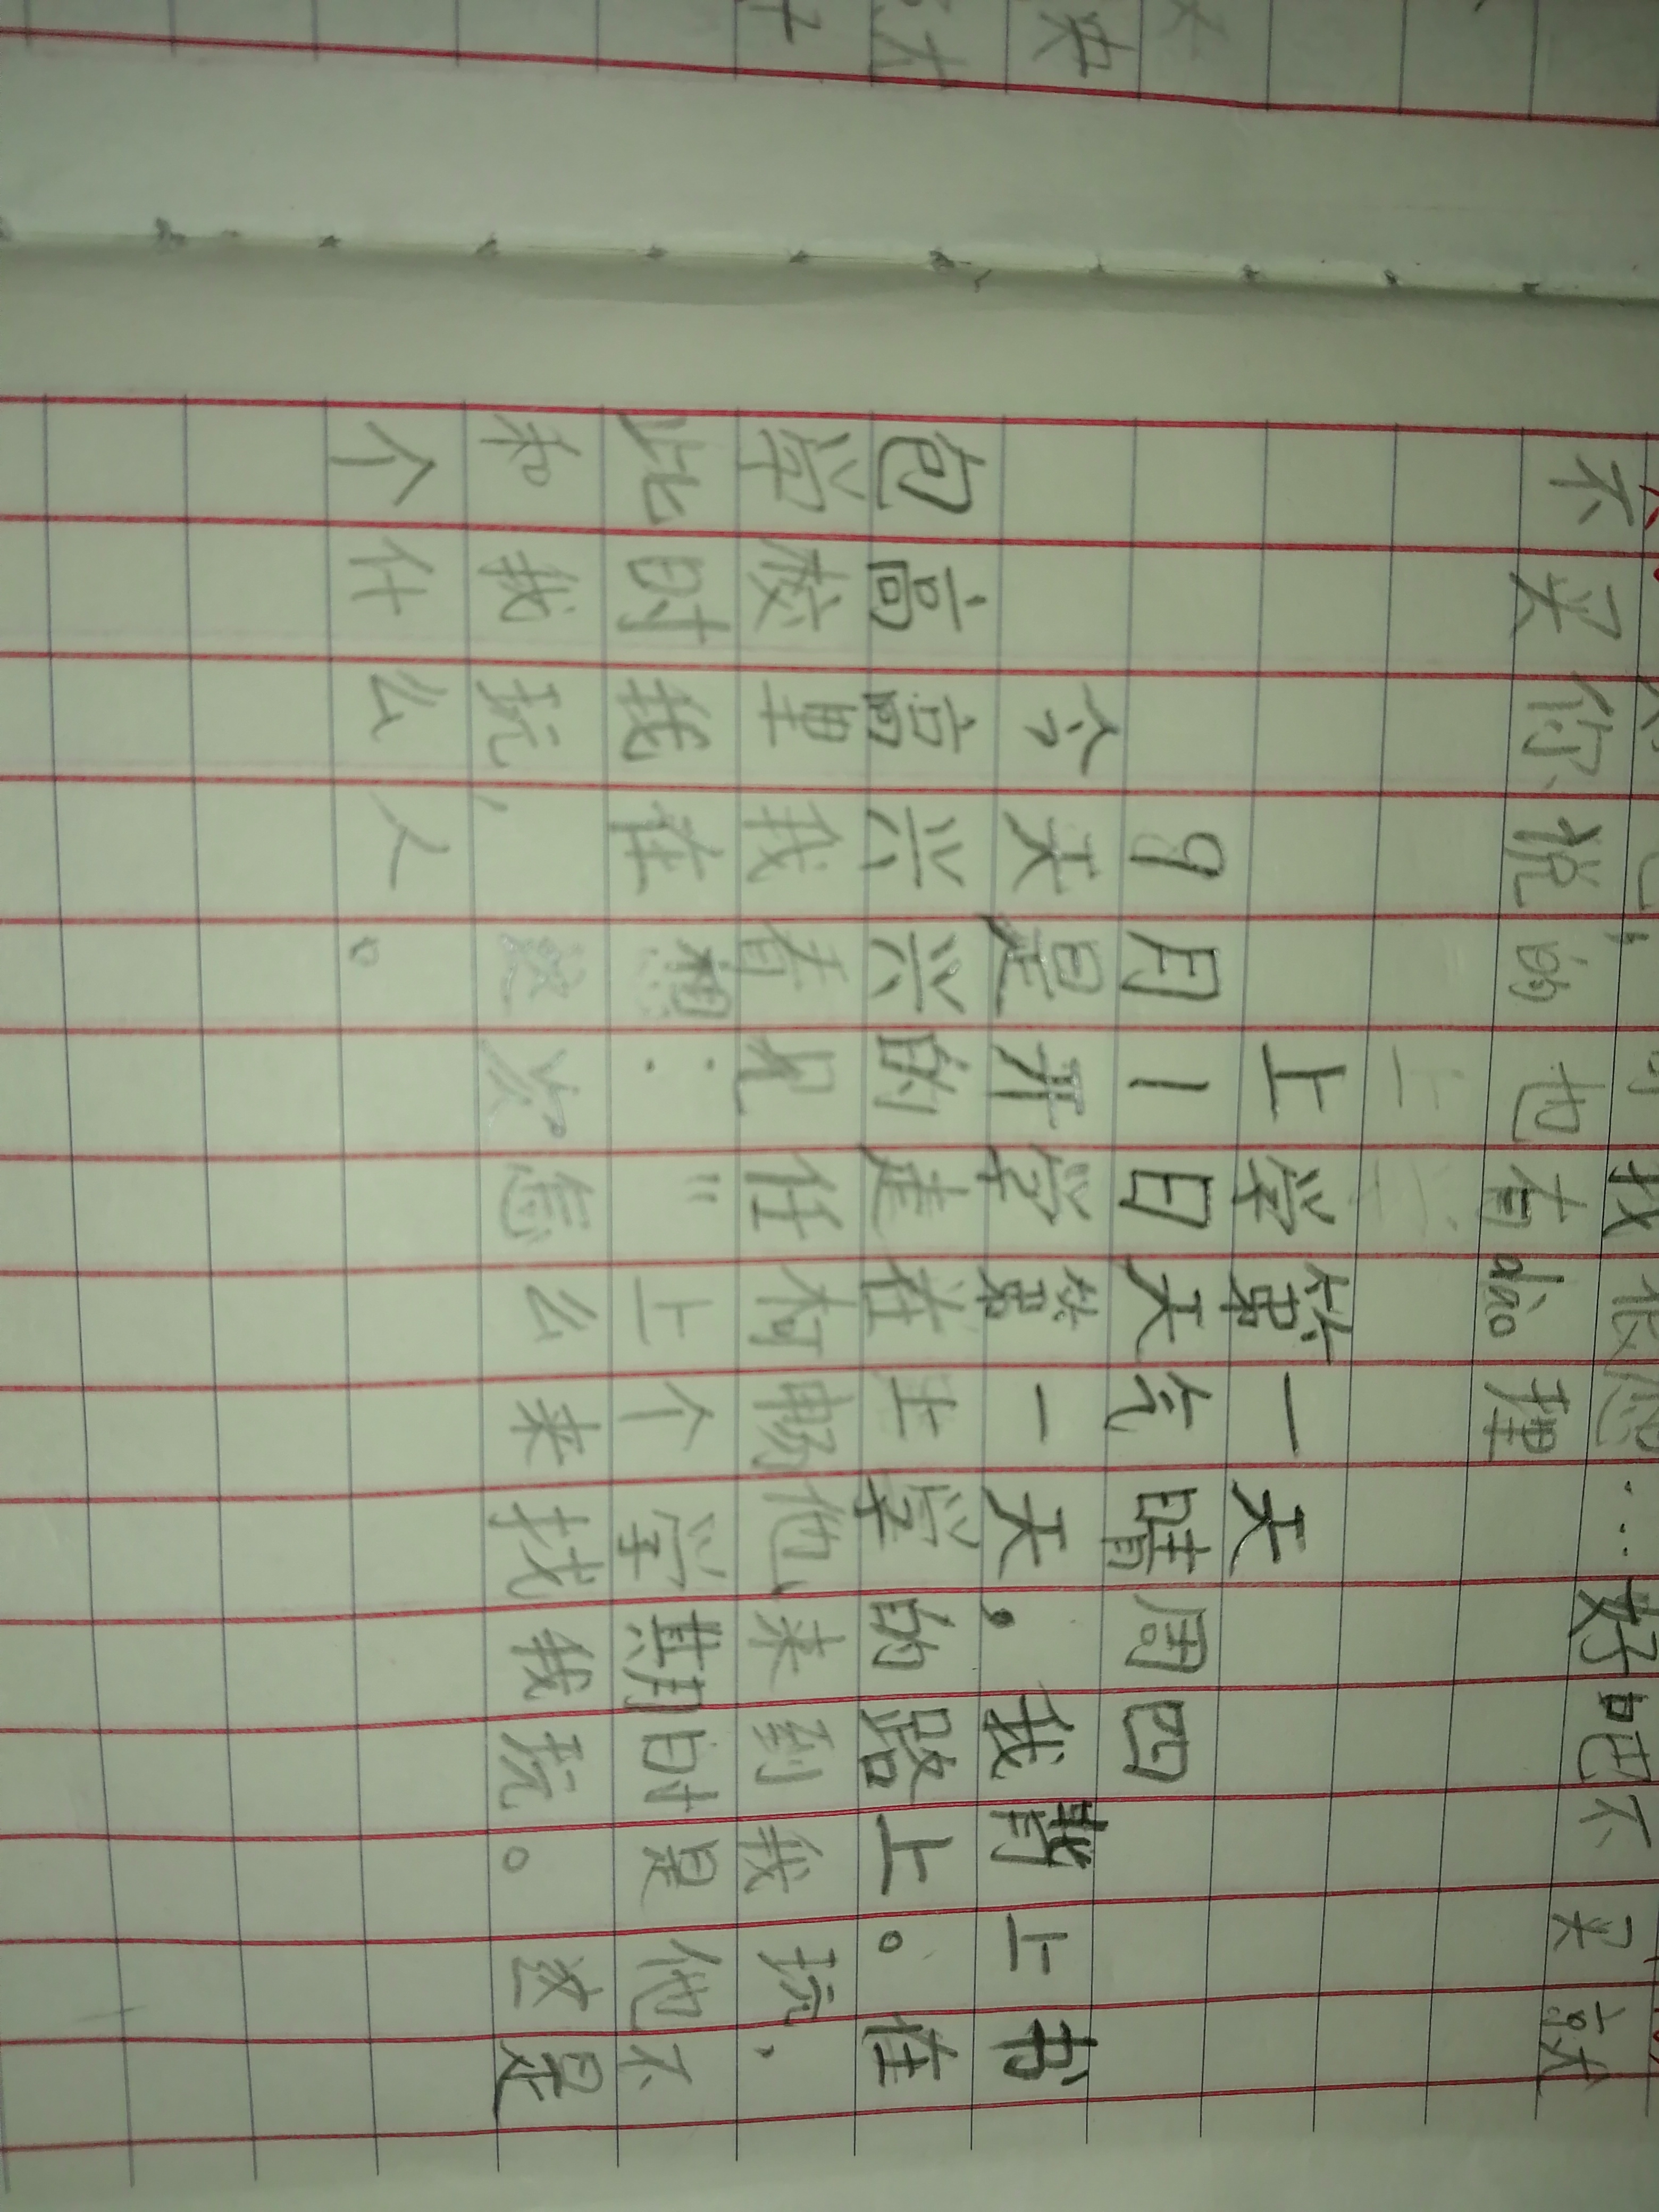 我很 … 好吧不买就
不买你说的也有dao理
上学第一天
9月1日天气晴周四
今天是开学第一天，我背上书
包高高兴兴的走在上学的路上。在
学校里我看见任柯畅他来到我玩，
比时我在想：“上个学期时是他不
和我玩，这次怎么来找我玩。这是
个什么人。